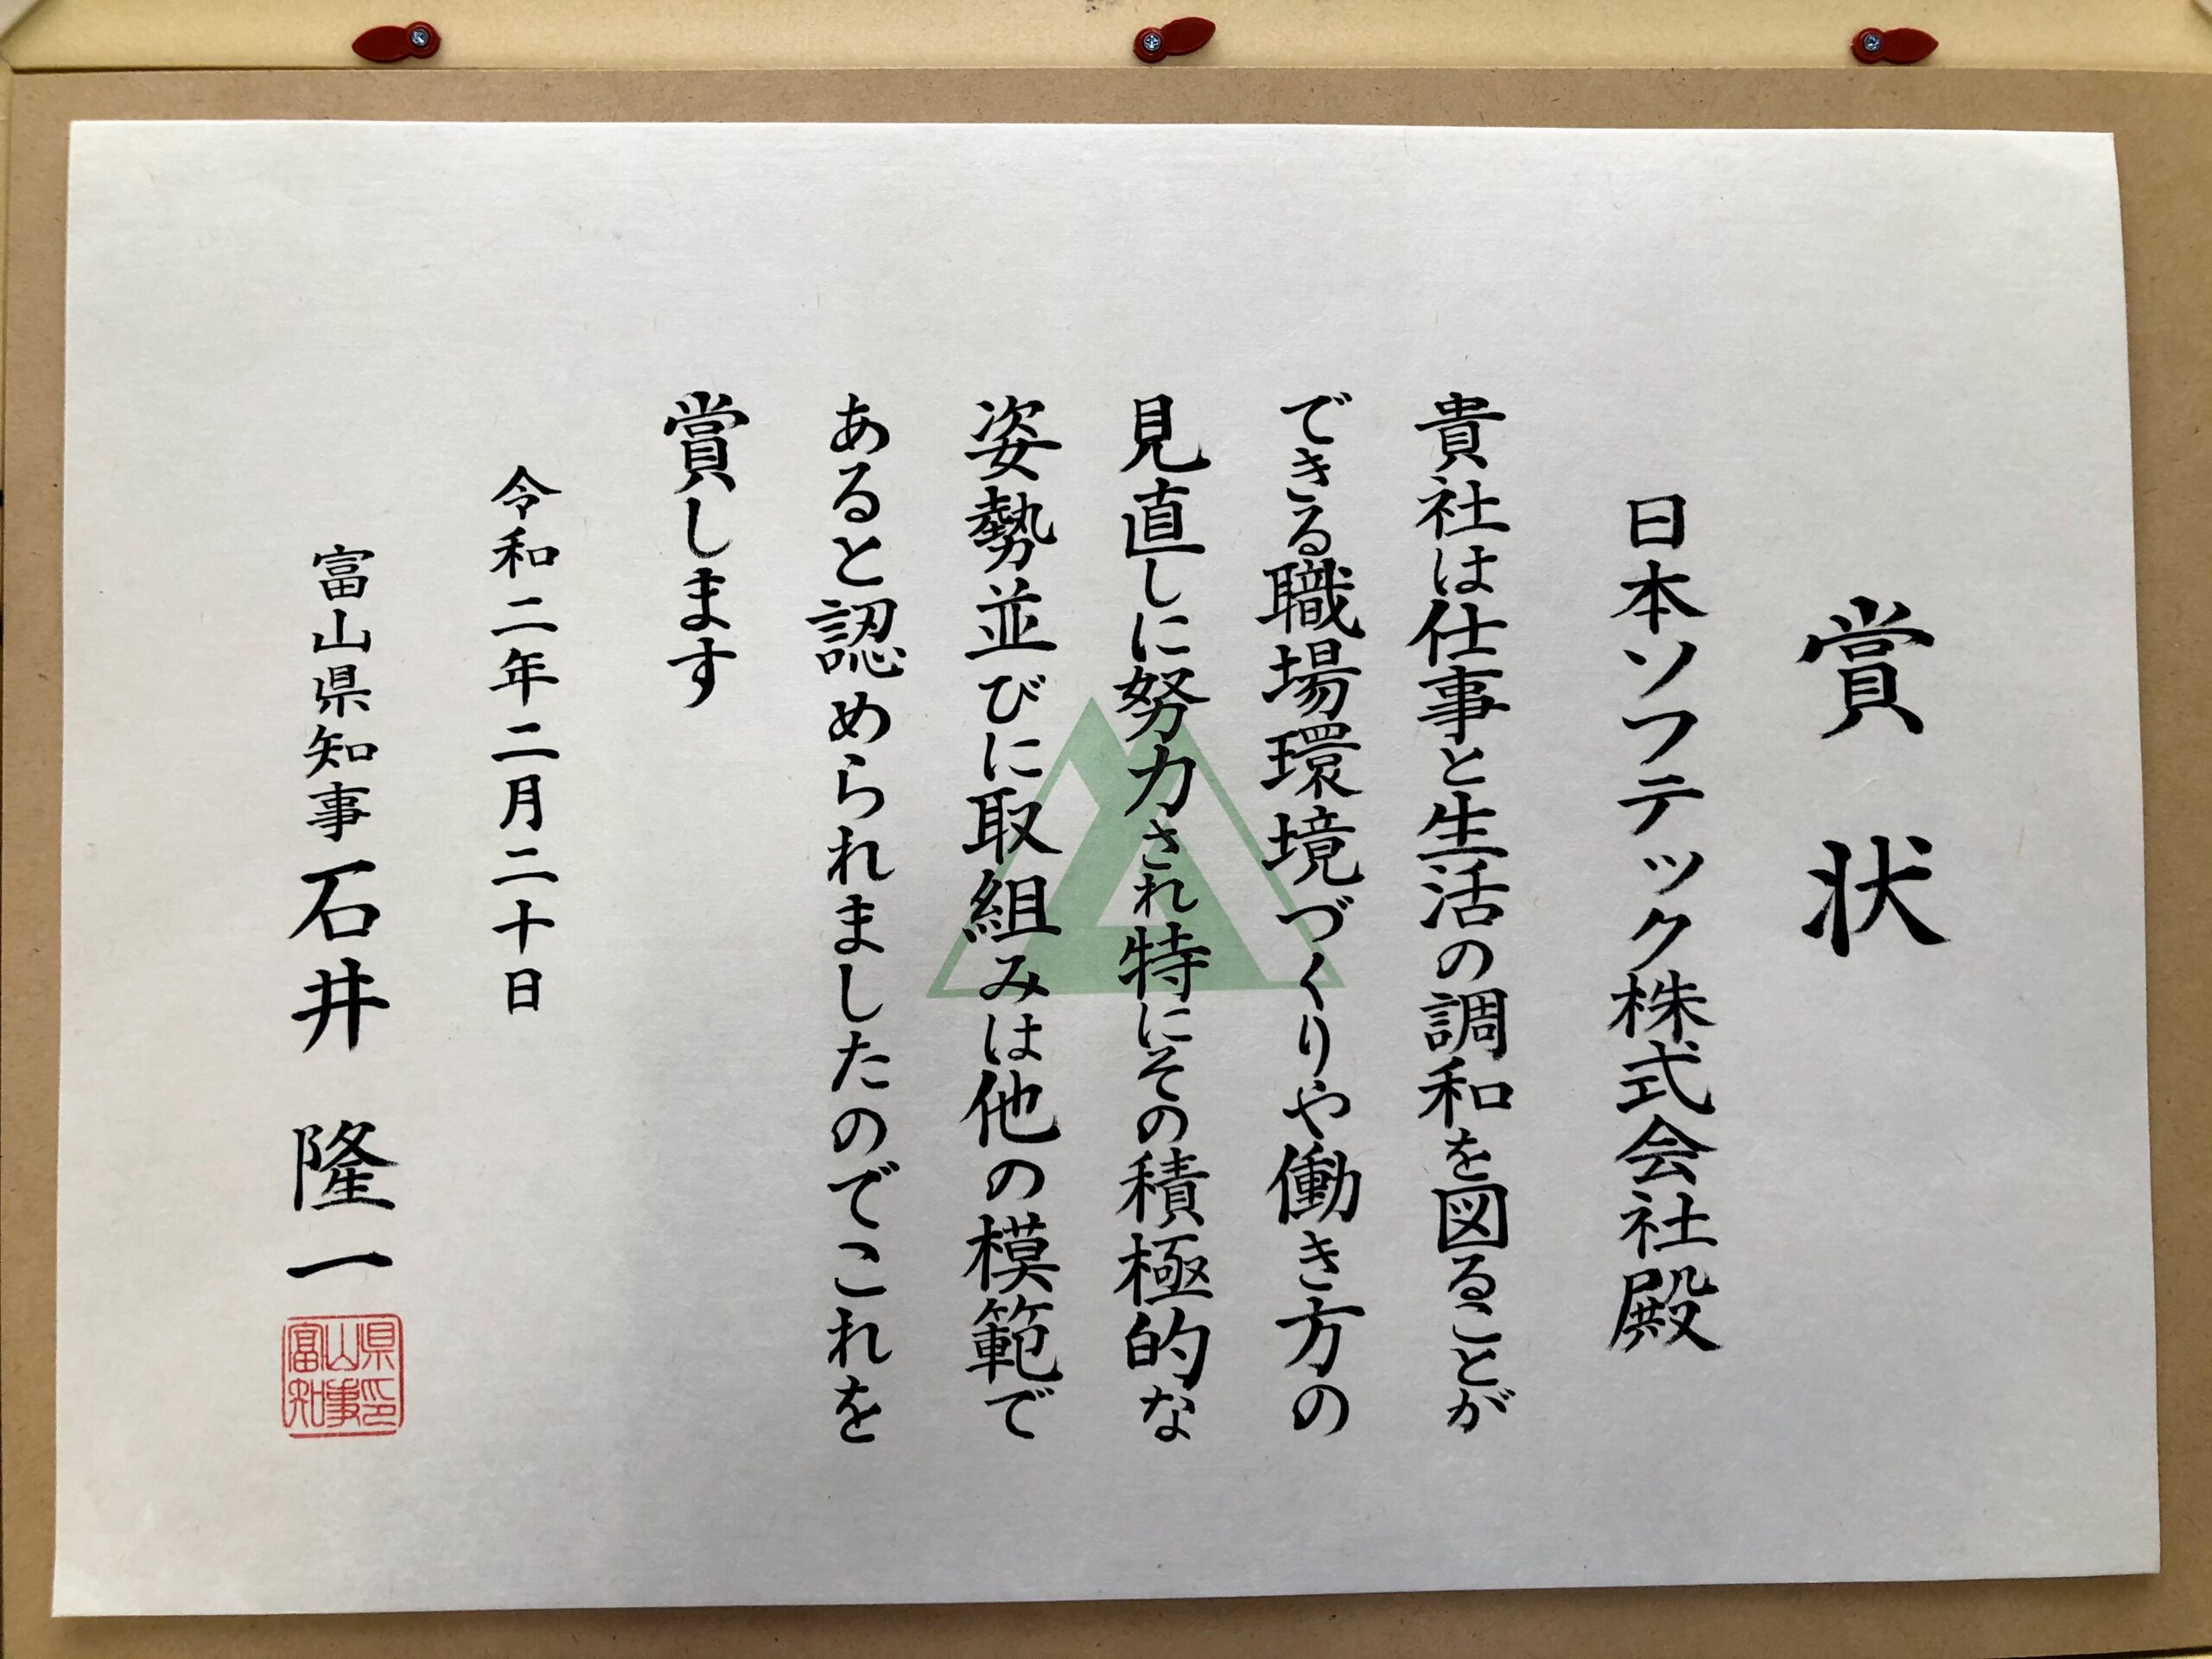 賞状
日本ソフテック株式会社殿
貴社は仕事と生活の調和を図ることが
できる職場環境づくりや働き方の
見直しに努力され特にその積極的な
姿勢並びに取組みは他の模範で
あると認められましたのでこれを
賞します
令和二年二月二十日
富山県知事 石井 隆一
富山県
知事印